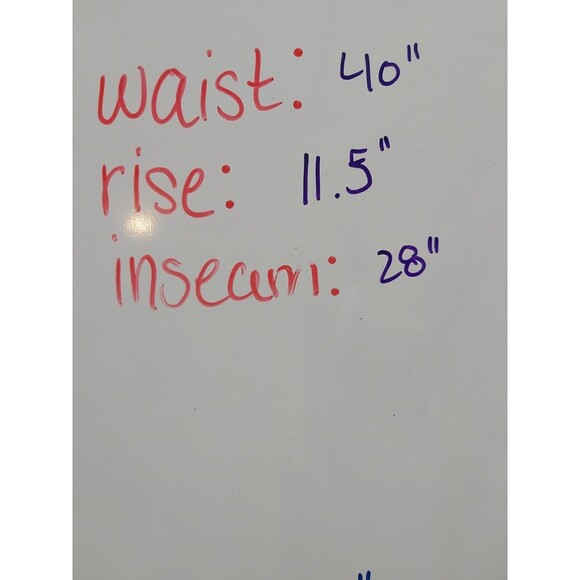 waist: 40"
rise: 11.5"
inseam: 28"
"